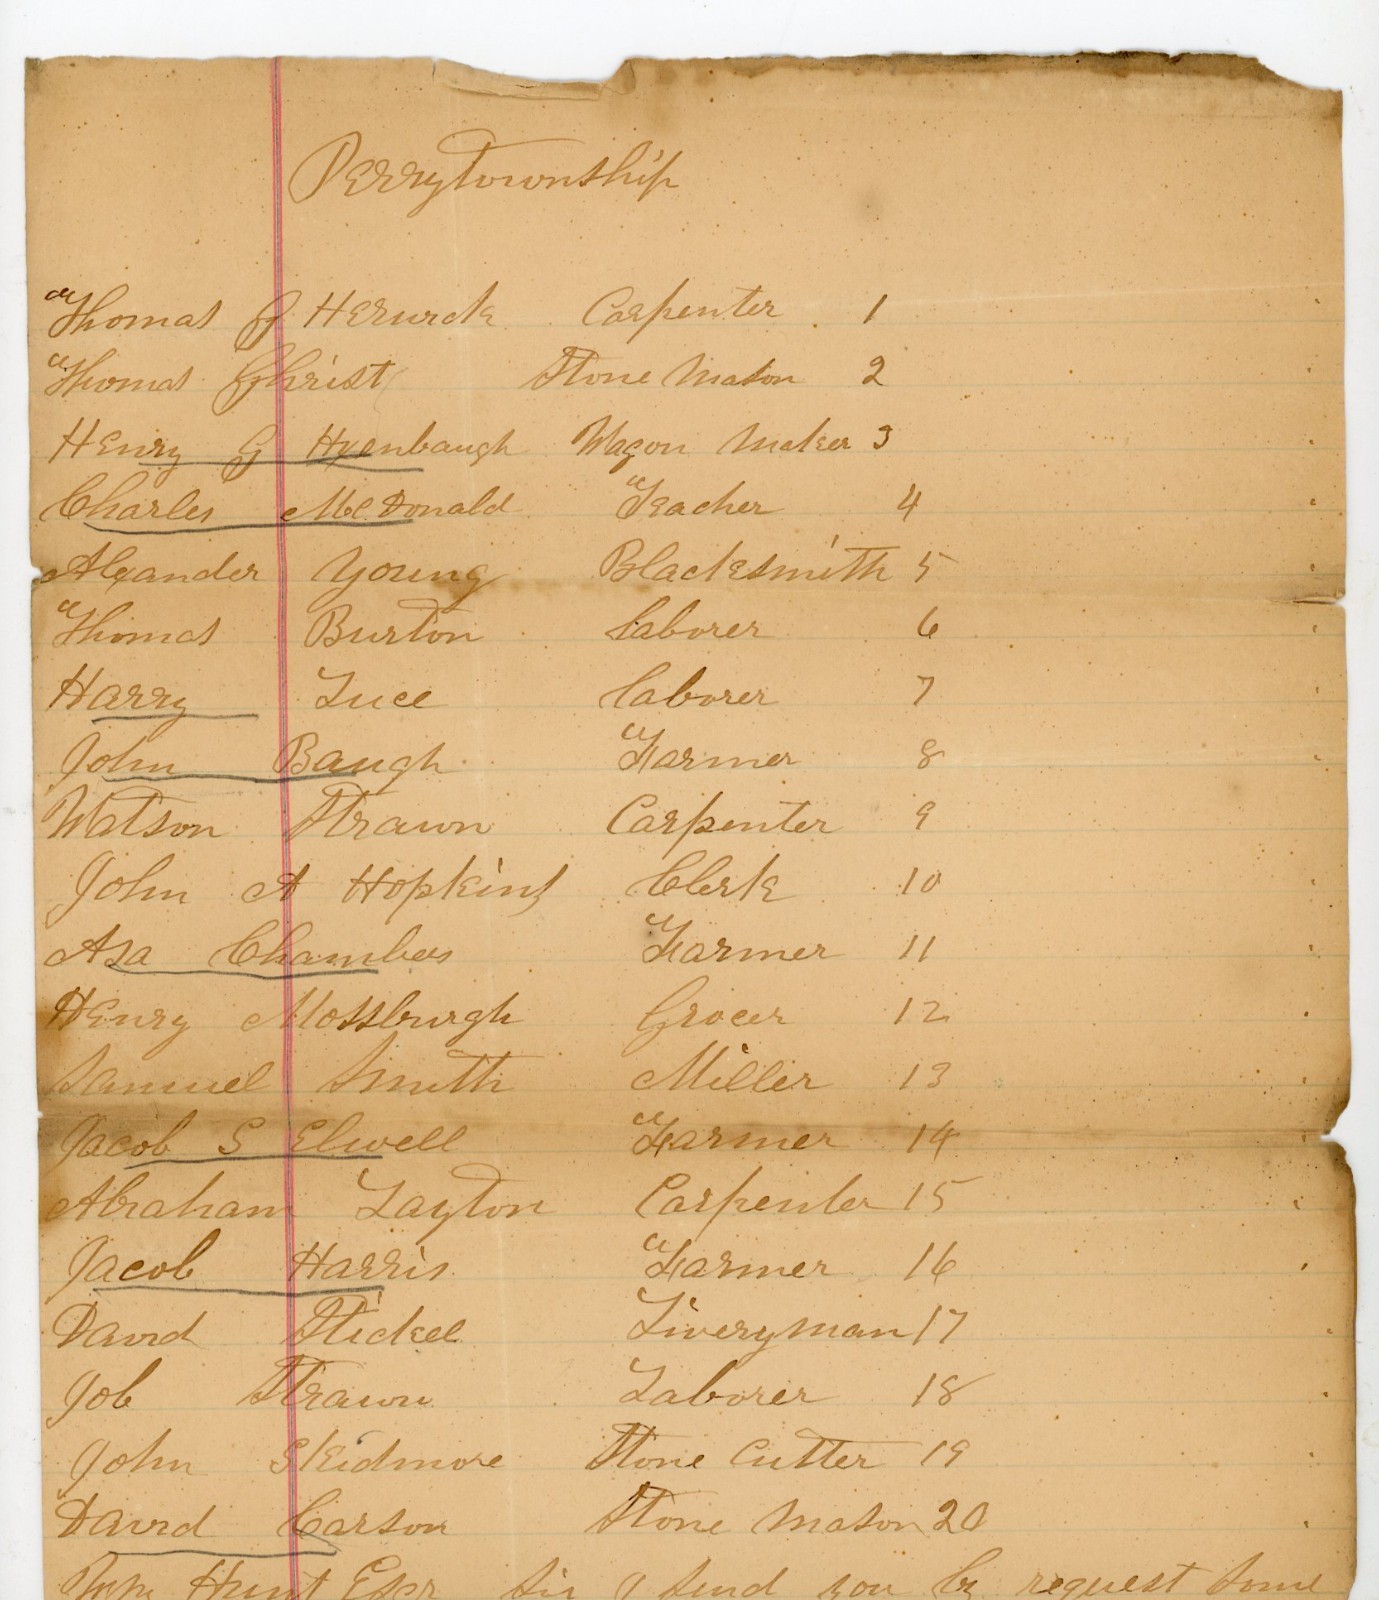 Perrytownship
Thomas J Herwick Carpenter 1
Thomas Christ Stone Mason 2
Henry G Hyenbaugh Wagon Maker 3
Charles McDonald Teacher 4
Alexander Young Blacksmith 5
Thomas Burton Laborer 6
Harry Luce Laborer 7
John Baugh Farmer 8
Watson Strawn Carpenter 9
John A Hopkins Clerk 10
Asa Chambers Farmer 11
Henry Mossburgh Grocer 12
Samuel Smith Miller 13
Jacob S Elwell Farmer 14
Abraham Layton Carpenter 15
Jacob Harris Farmer 16
David Stickel Liveryman 17
Job Strawn Laborer 18
John Skidmore Stone Cutter 19
David Carson Stone Mason 20
Hunt Esqr Sir I send you by request some